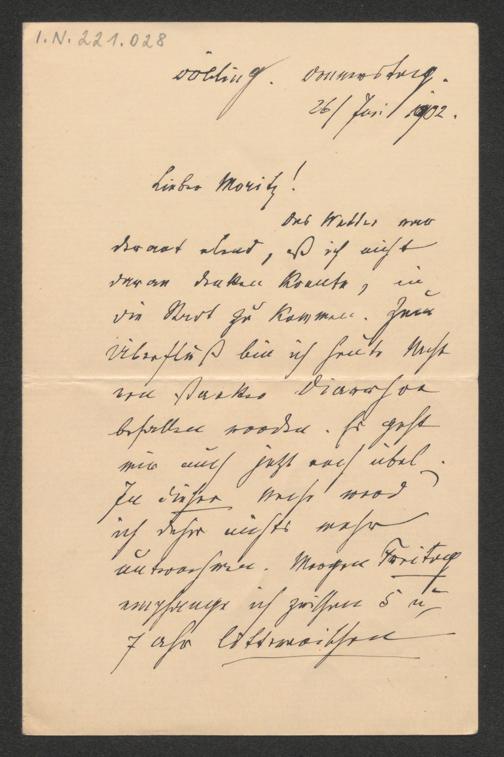 I.N. 221.028
Döbling. Donnerstag.
26/ Juni 1902.
Lieber Moritz!
Das Wetter war
derart elend, daß ich nicht
daran denken konnte, in
die Stadt zu kommen. Zum
Überfluß bin ich heute Nacht
von starker Diarrhöe
befallen worden. Es geht
mir auch jetzt noch übel.
In dieser Woche werd
ich daher nichts mehr
unternehmen. Morgen Freitag
empfange ich zwischen 5 u
7 Uhr